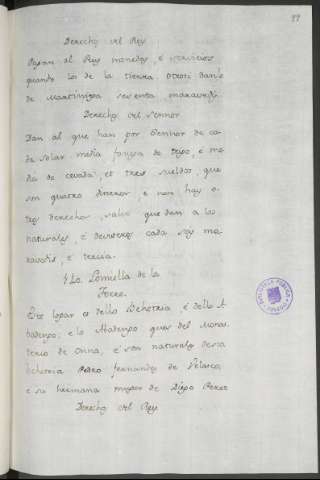 99
Derecho del Rey
Pagan al Rey monedas, é servicios
quando los de la tierra otrosi danle
de Martiniega sesenta maravedis
Derecho del sennor
Dan al que han por Sennor de ca-
da solar media fanega de trigo, é me-
dia de cevada, et tres sueldos, que
son quatro dineros, e non hay o-
tros derechos, salvo que dan a los
naturales, é deviseros cada seys ma-
ravedis, é tercia.
§ La Lomiella de la
Torre.
Este logar es dello Behetria, é dello A-
badengo; e lo Abadengo ques del Monas-
terio de Onna, é son naturales desta
behetria Pedro Fernandez de Velasco,
e su hermana muger de Diego Perez
Derecho del Rey